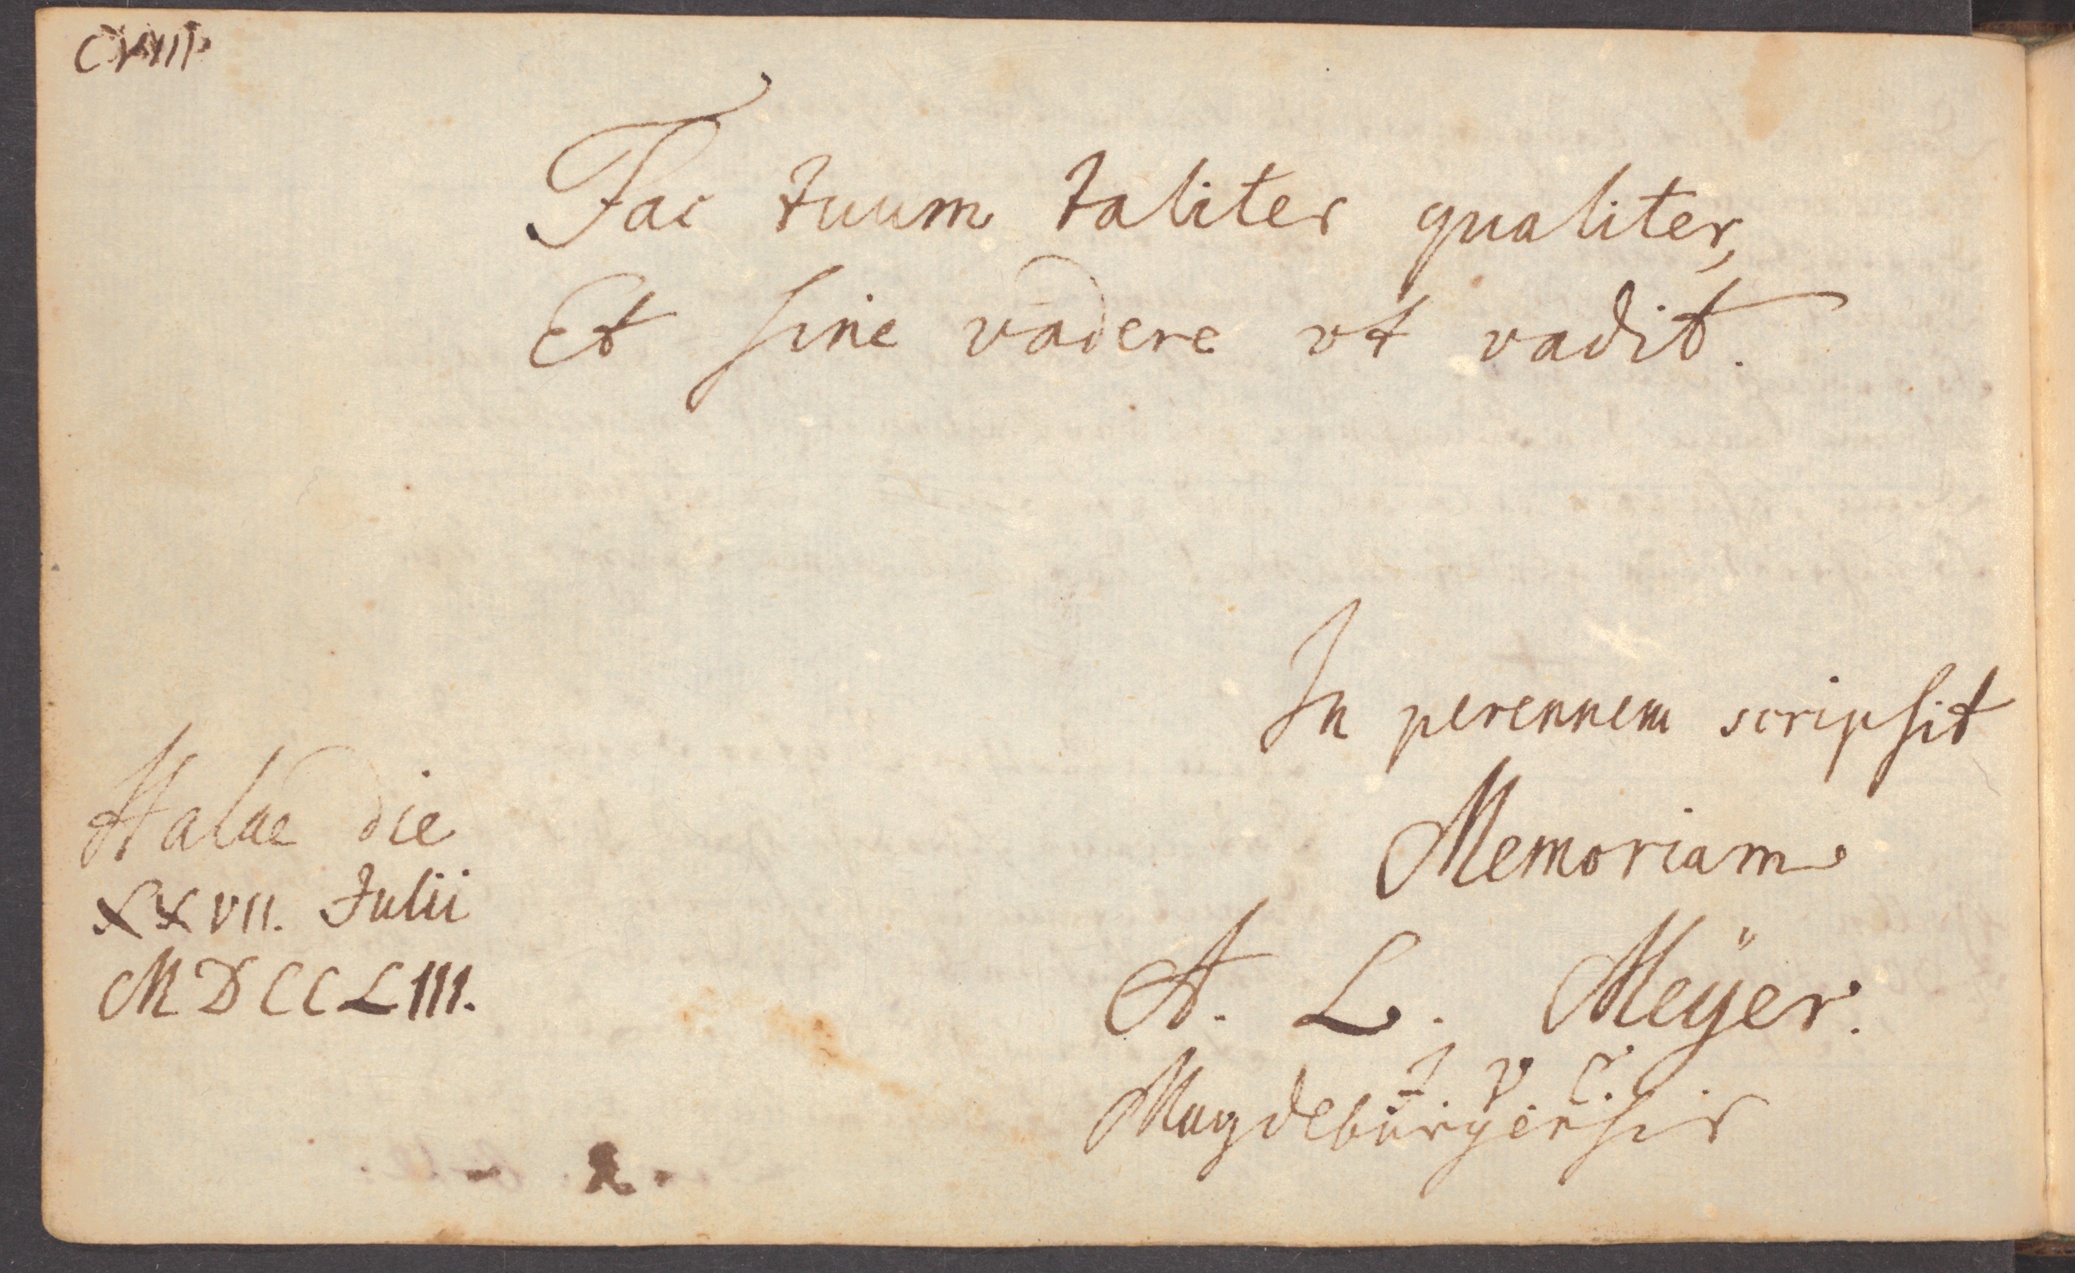 Fac tuum taliter qualiter,
Et sine vadere vt vadit.
In perennem scripsit
Memoriam
A. L. Meÿer.
I. V. C.
Magdeburgensis
Halae die
XXVII. Julii
MDCCLIII.